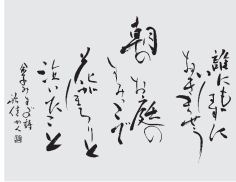 誰にもいはずに
おきませう
朝のお庭の
すみっこで
花がほろりと
泣いたこと
金子みすゞ詩